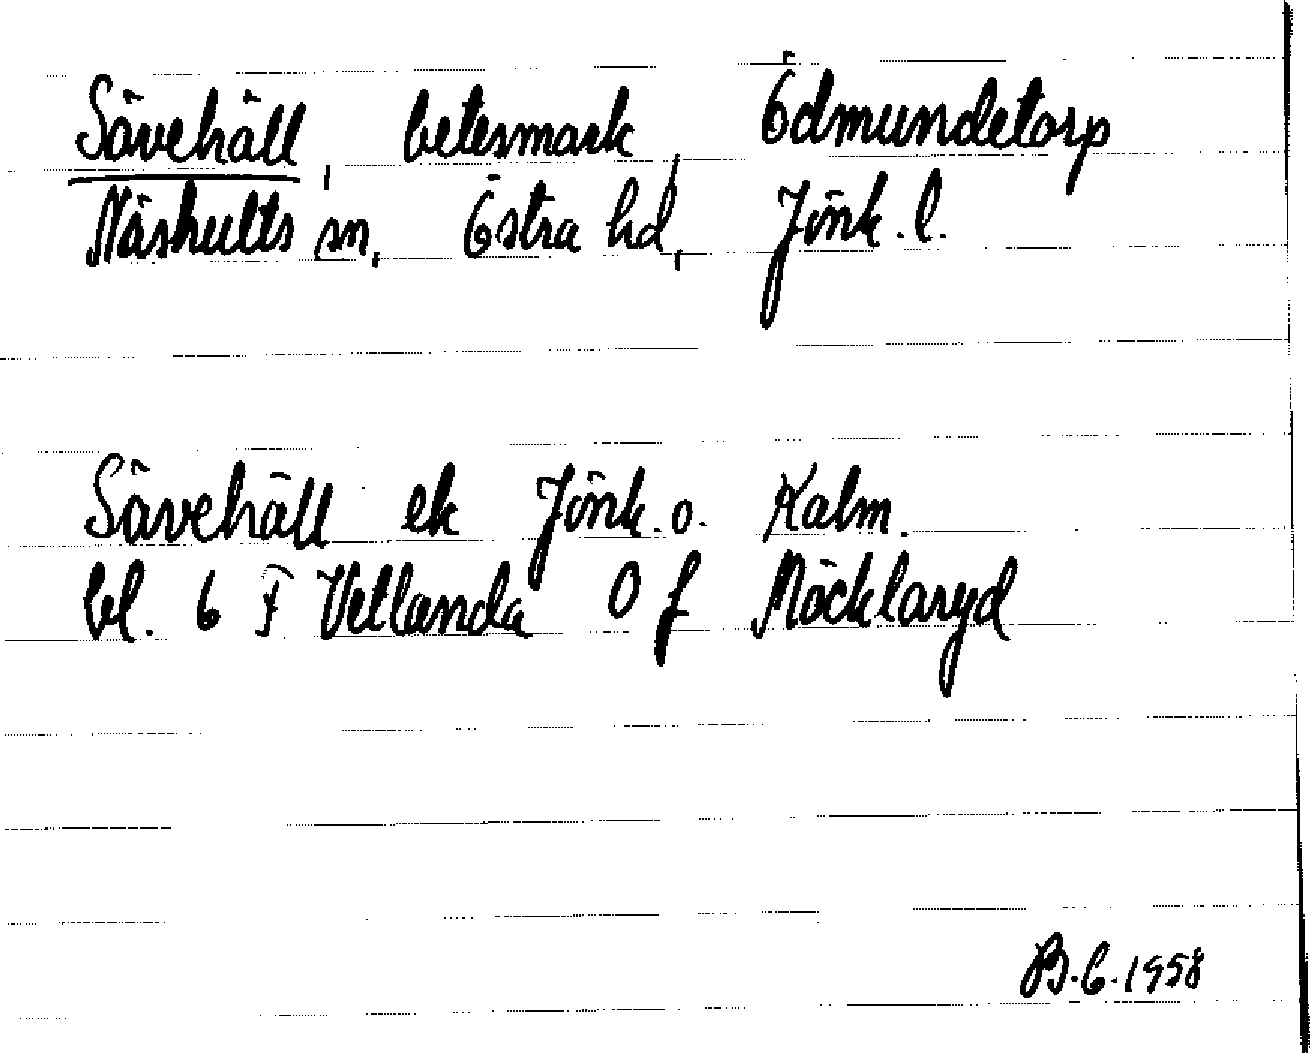 Sävehäll, betesmark, Ödmundetorp
Näshults sn, Östra hd, Jönk. l.
Sävehäll ek Jönk. o. Kalm.
bl. 6 F Vetlanda 0 f Möcklaryd
B.C. 1958